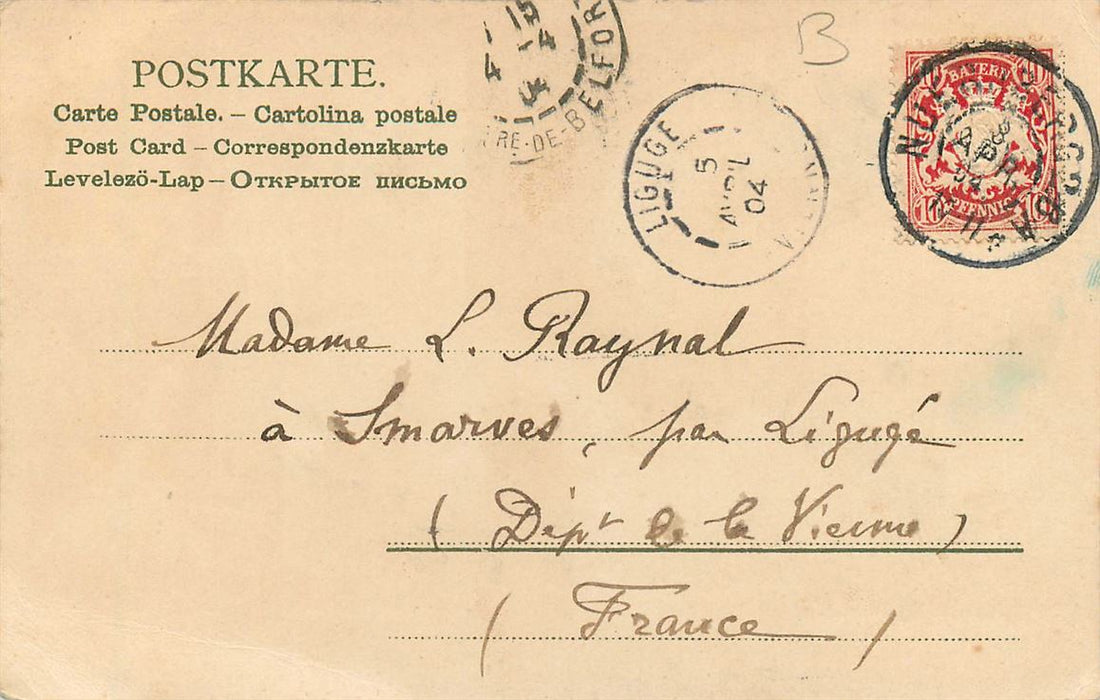 POSTKARTE.
Carte Postale. – Cartolina postale
Post Card – Correspondenzkarte
Levelezö-Lap – Открытое письмо
BELFORT
B
LIGUGE
5
AVRIL
04
BAYERN
10 PFENNIG 10
3
APR
04
Madame L. Raynal
à Smarves, par Ligugé
(Dépt de la Vienne)
(France)